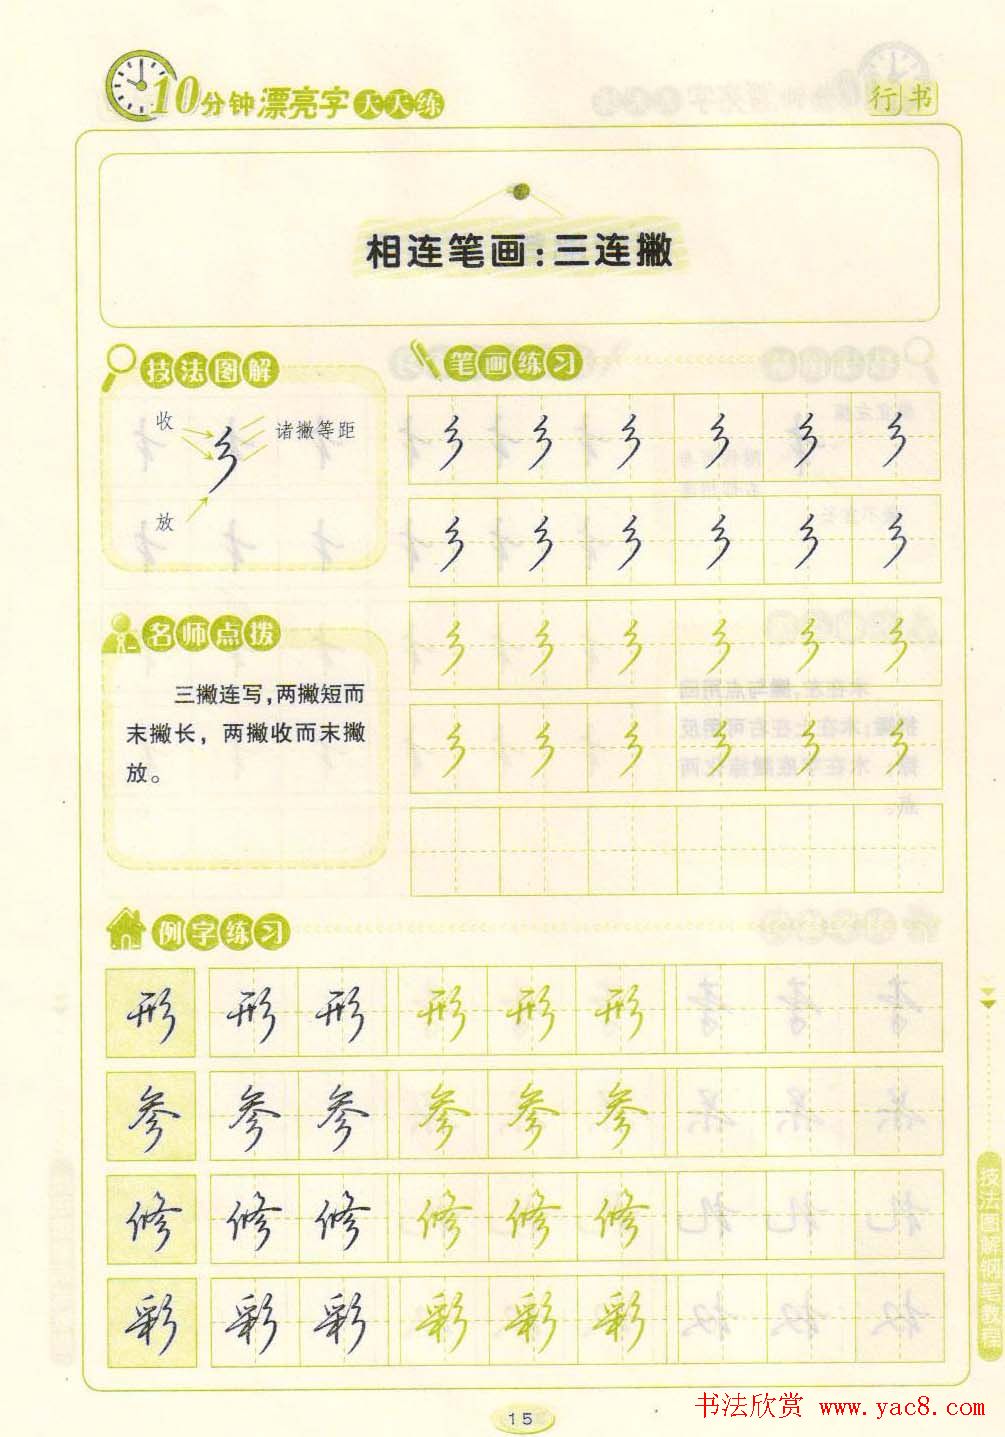 10分钟漂亮字天天练
行书
相连笔画:三连撇
技法图解
收
诸撇等距
放
笔画练习
名师点拨
三撇连写,两撇短而
末撇长，两撇收而末撇
放。
例字练习
形 形 形 形 形 形
参 参 参 参 参 参
修 修 修 修 修 修
彩 彩 彩 彩 彩 彩
技法图解钢笔教程
15
书法欣赏 www.yac8.com